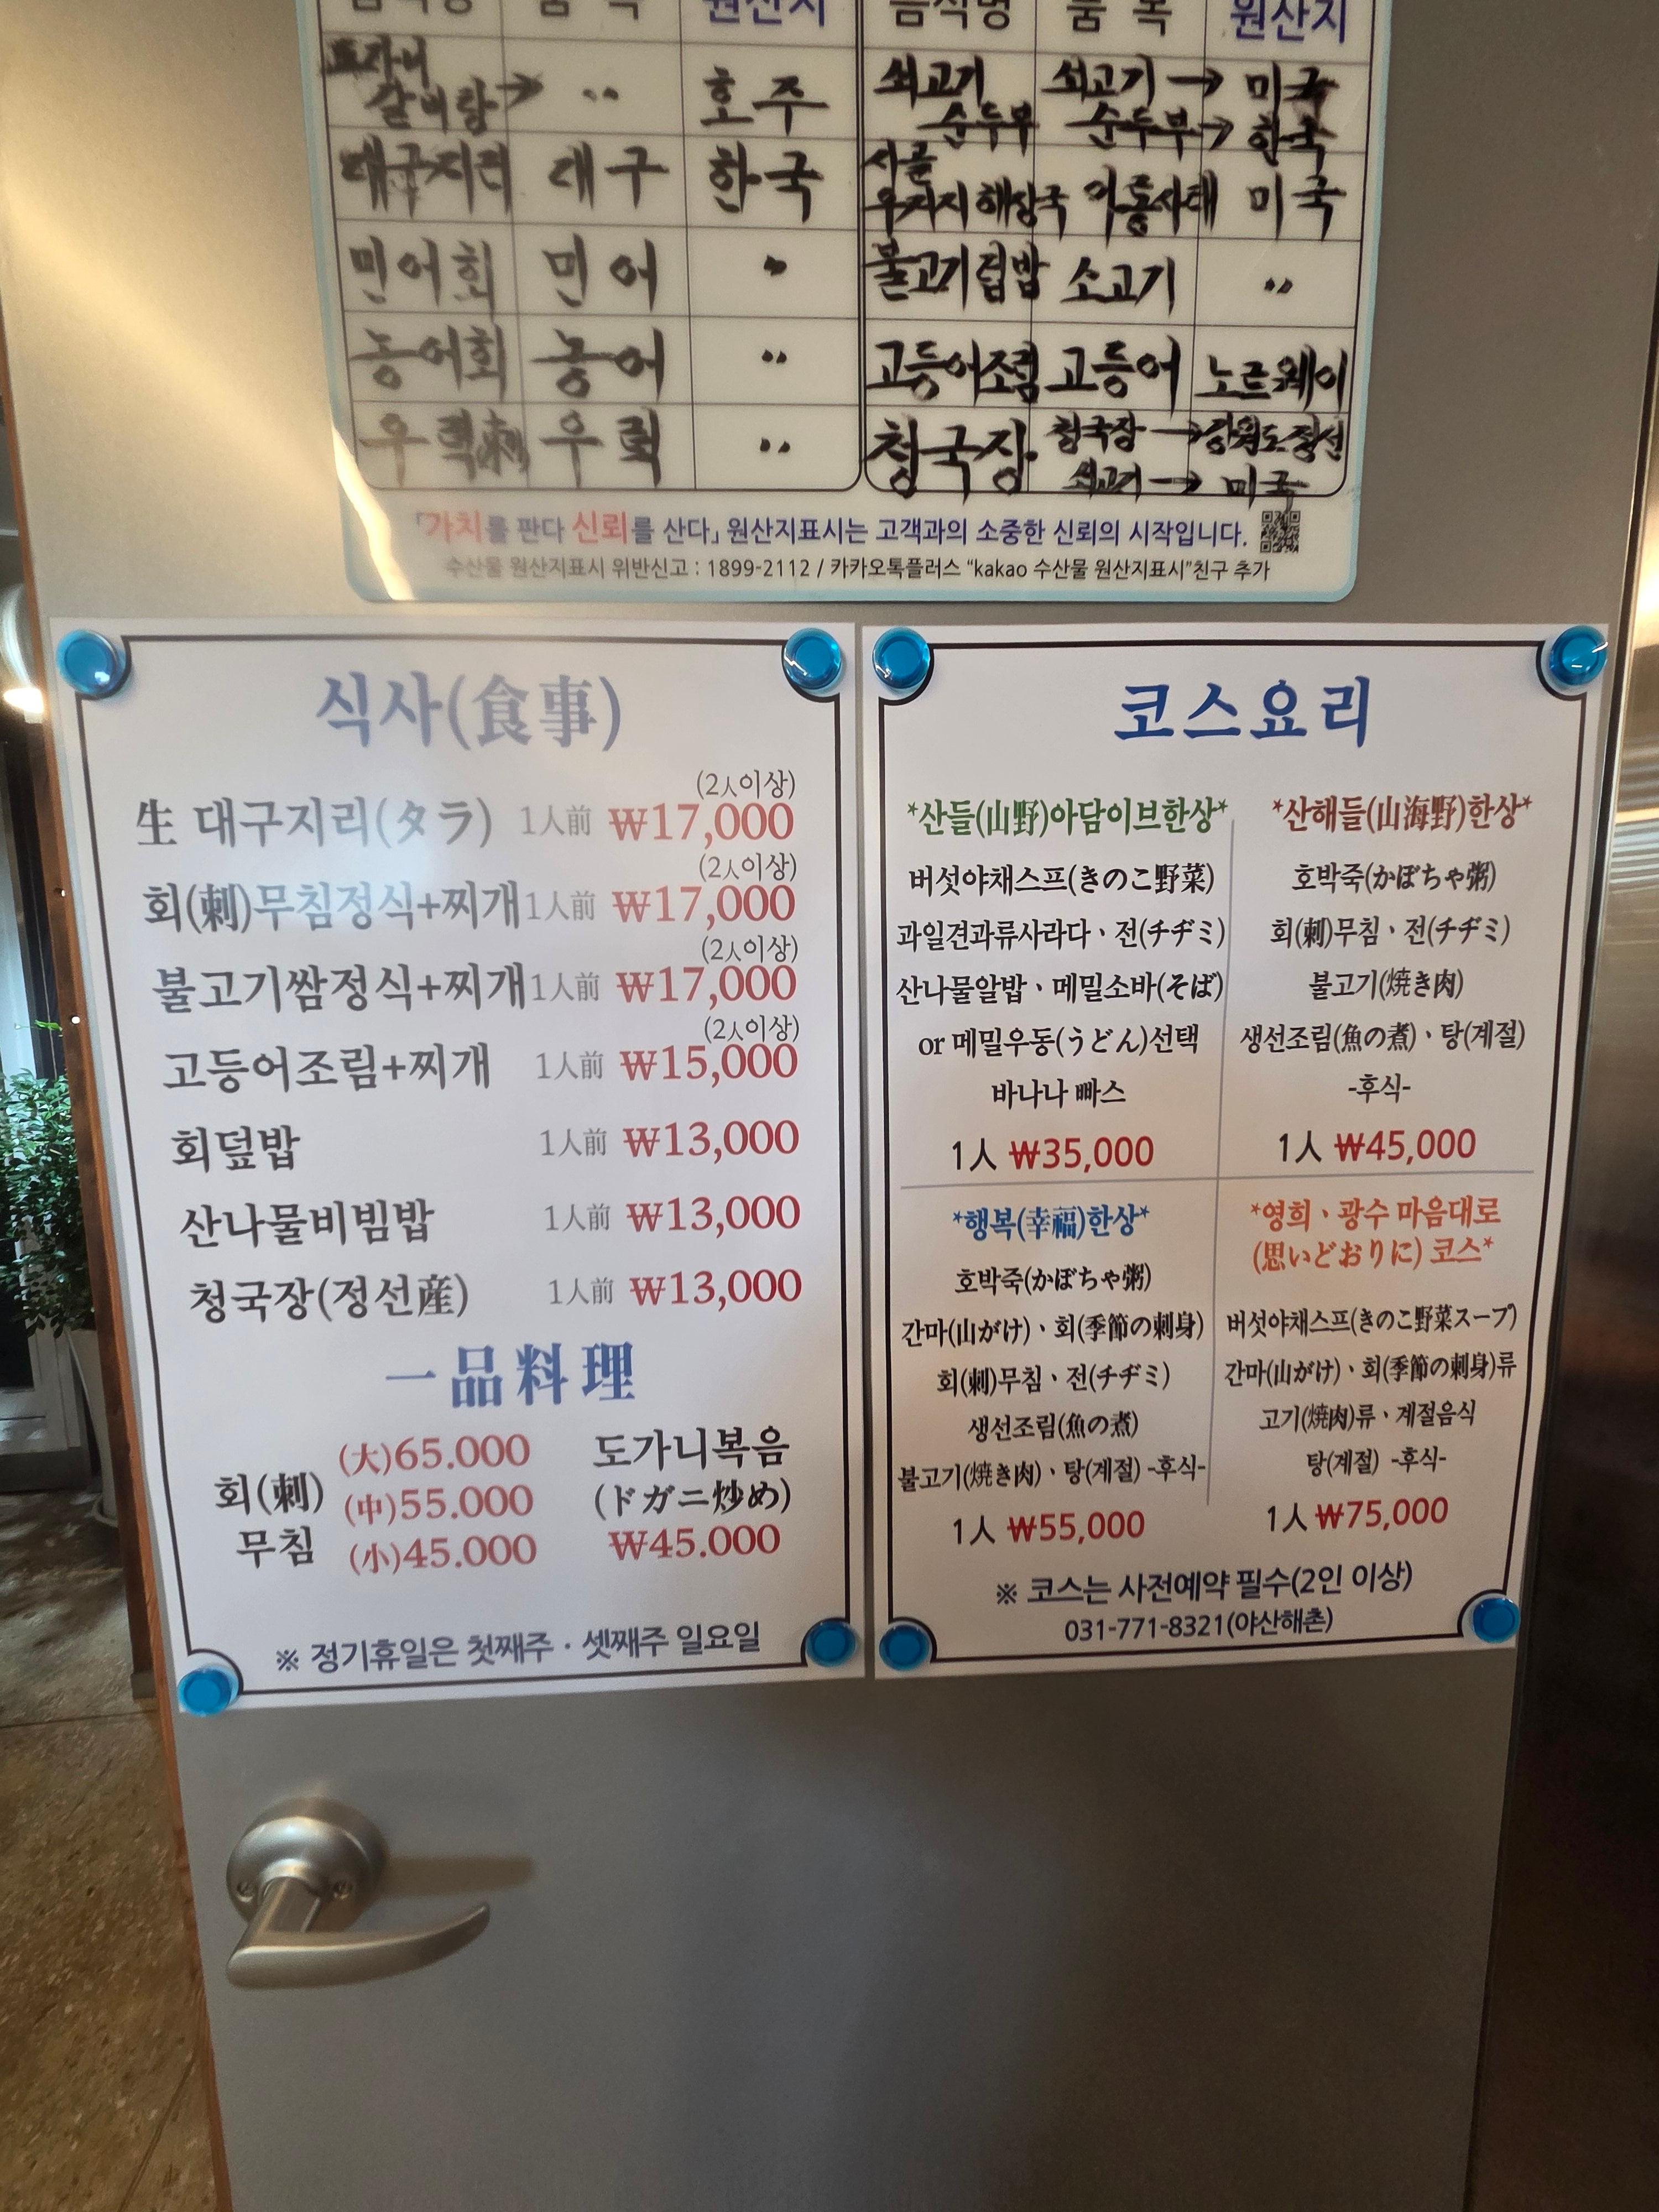 음식명 품목 원산지
도가니
갈비탕 → 〃 호주
대구지리 대구 한국
민어회 민어 〃
농어회 농어 〃
우럭刺 우럭 〃
음식명 품목 원산지
쇠고기 쇠고기 → 미국
순두부 순두부 → 한국
사골
우거지해장국 아롱사태 미국
불고기덮밥 소고기 〃
고등어조림 고등어 노르웨이
청국장 청국장 → 강원도정선
쇠고기 → 미국
「가치를 판다 신뢰를 산다」 원산지표시는 고객과의 소중한 신뢰의 시작입니다.
수산물 원산지표시 위반신고 : 1899-2112 / 카카오톡플러스 “kakao 수산물 원산지표시”친구 추가
식사(食事)
(2人이상)
生 대구지리(タラ) 1人前 ₩17,000
(2人이상)
회(刺)무침정식+찌개 1人前 ₩17,000
(2人이상)
불고기쌈정식+찌개 1人前 ₩17,000
(2人이상)
고등어조림+찌개 1人前 ₩15,000
회덮밥 1人前 ₩13,000
산나물비빔밥 1人前 ₩13,000
청국장(정선産) 1人前 ₩13,000
一品料理
회(刺)
무침
(大)65.000
(中)55.000
(小)45.000
도가니볶음
(ドガニ炒め)
₩45.000
※ 정기휴일은 첫째주 · 셋째주 일요일
코스요리
*산들(山野)아담이브한상*
버섯야채스프(きのこ野菜)
과일견과류사라다 · 전(チヂミ)
산나물알밥 · 메밀소바(そば)
or 메밀우동(うどん)선택
바나나 빠스
1人 ₩35,000
*산해들(山海野)한상*
호박죽(かぼちゃ粥)
회(刺)무침 · 전(チヂミ)
불고기(焼き肉)
생선조림(魚の煮) · 탕(계절)
-후식-
1人 ₩45,000
*행복(幸福)한상*
호박죽(かぼちゃ粥)
간마(山がけ) · 회(季節の刺身)
회(刺)무침 · 전(チヂミ)
생선조림(魚の煮)
불고기(焼き肉) · 탕(계절) -후식-
1人 ₩55,000
*영희 · 광수 마음대로
(思いどおりに) 코스*
버섯야채스프(きのこ野菜スープ)
간마(山がけ) · 회(季節の刺身)류
고기(焼肉)류 · 계절음식
탕(계절) -후식-
1人 ₩75,000
※ 코스는 사전예약 필수(2인 이상)
031-771-8321(야산해촌)